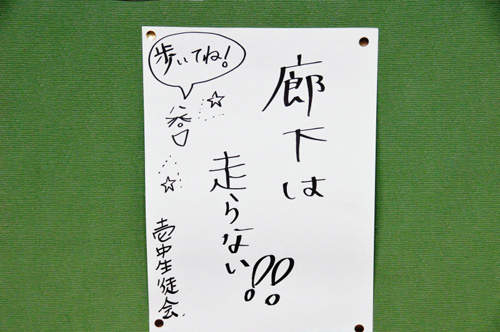 廊下は
走らない!!
歩いてね!
壱中生徒会